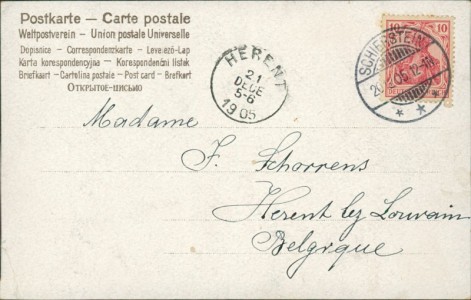 Postkarte — Carte postale
Weltpostverein - Union postale Universelle
Dopisnice - Correspondenzkarte - Levelező-Lap
Karta korespondencyjna - Korespondenční lístek
Briefkaart - Cartolina postale - Post card - Brefkort
Открытое письмо
HERENT
21
DECE
5-6
1905
SCHIERSTEIN
10 10
Madame
F. Schorrens
Herent lez Louvain
Belgique